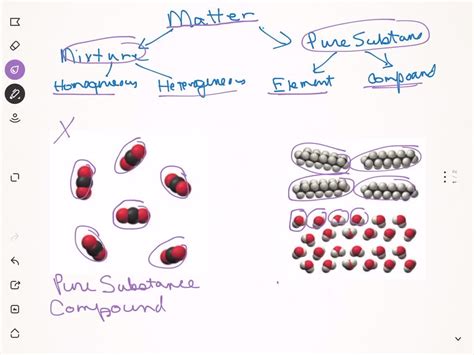 Matter
Mixture
Pure Substanc
Homogneous
Heterogineous
Element
Compound
X
Pure Substance
Compound
1/2